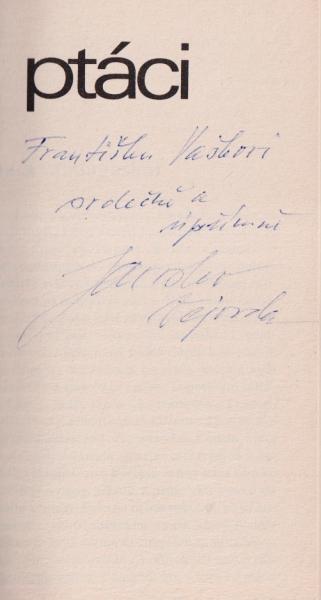 ptáci
Františku Vaškovi
srdečně a
upřímně
Jaroslav
Čejorda